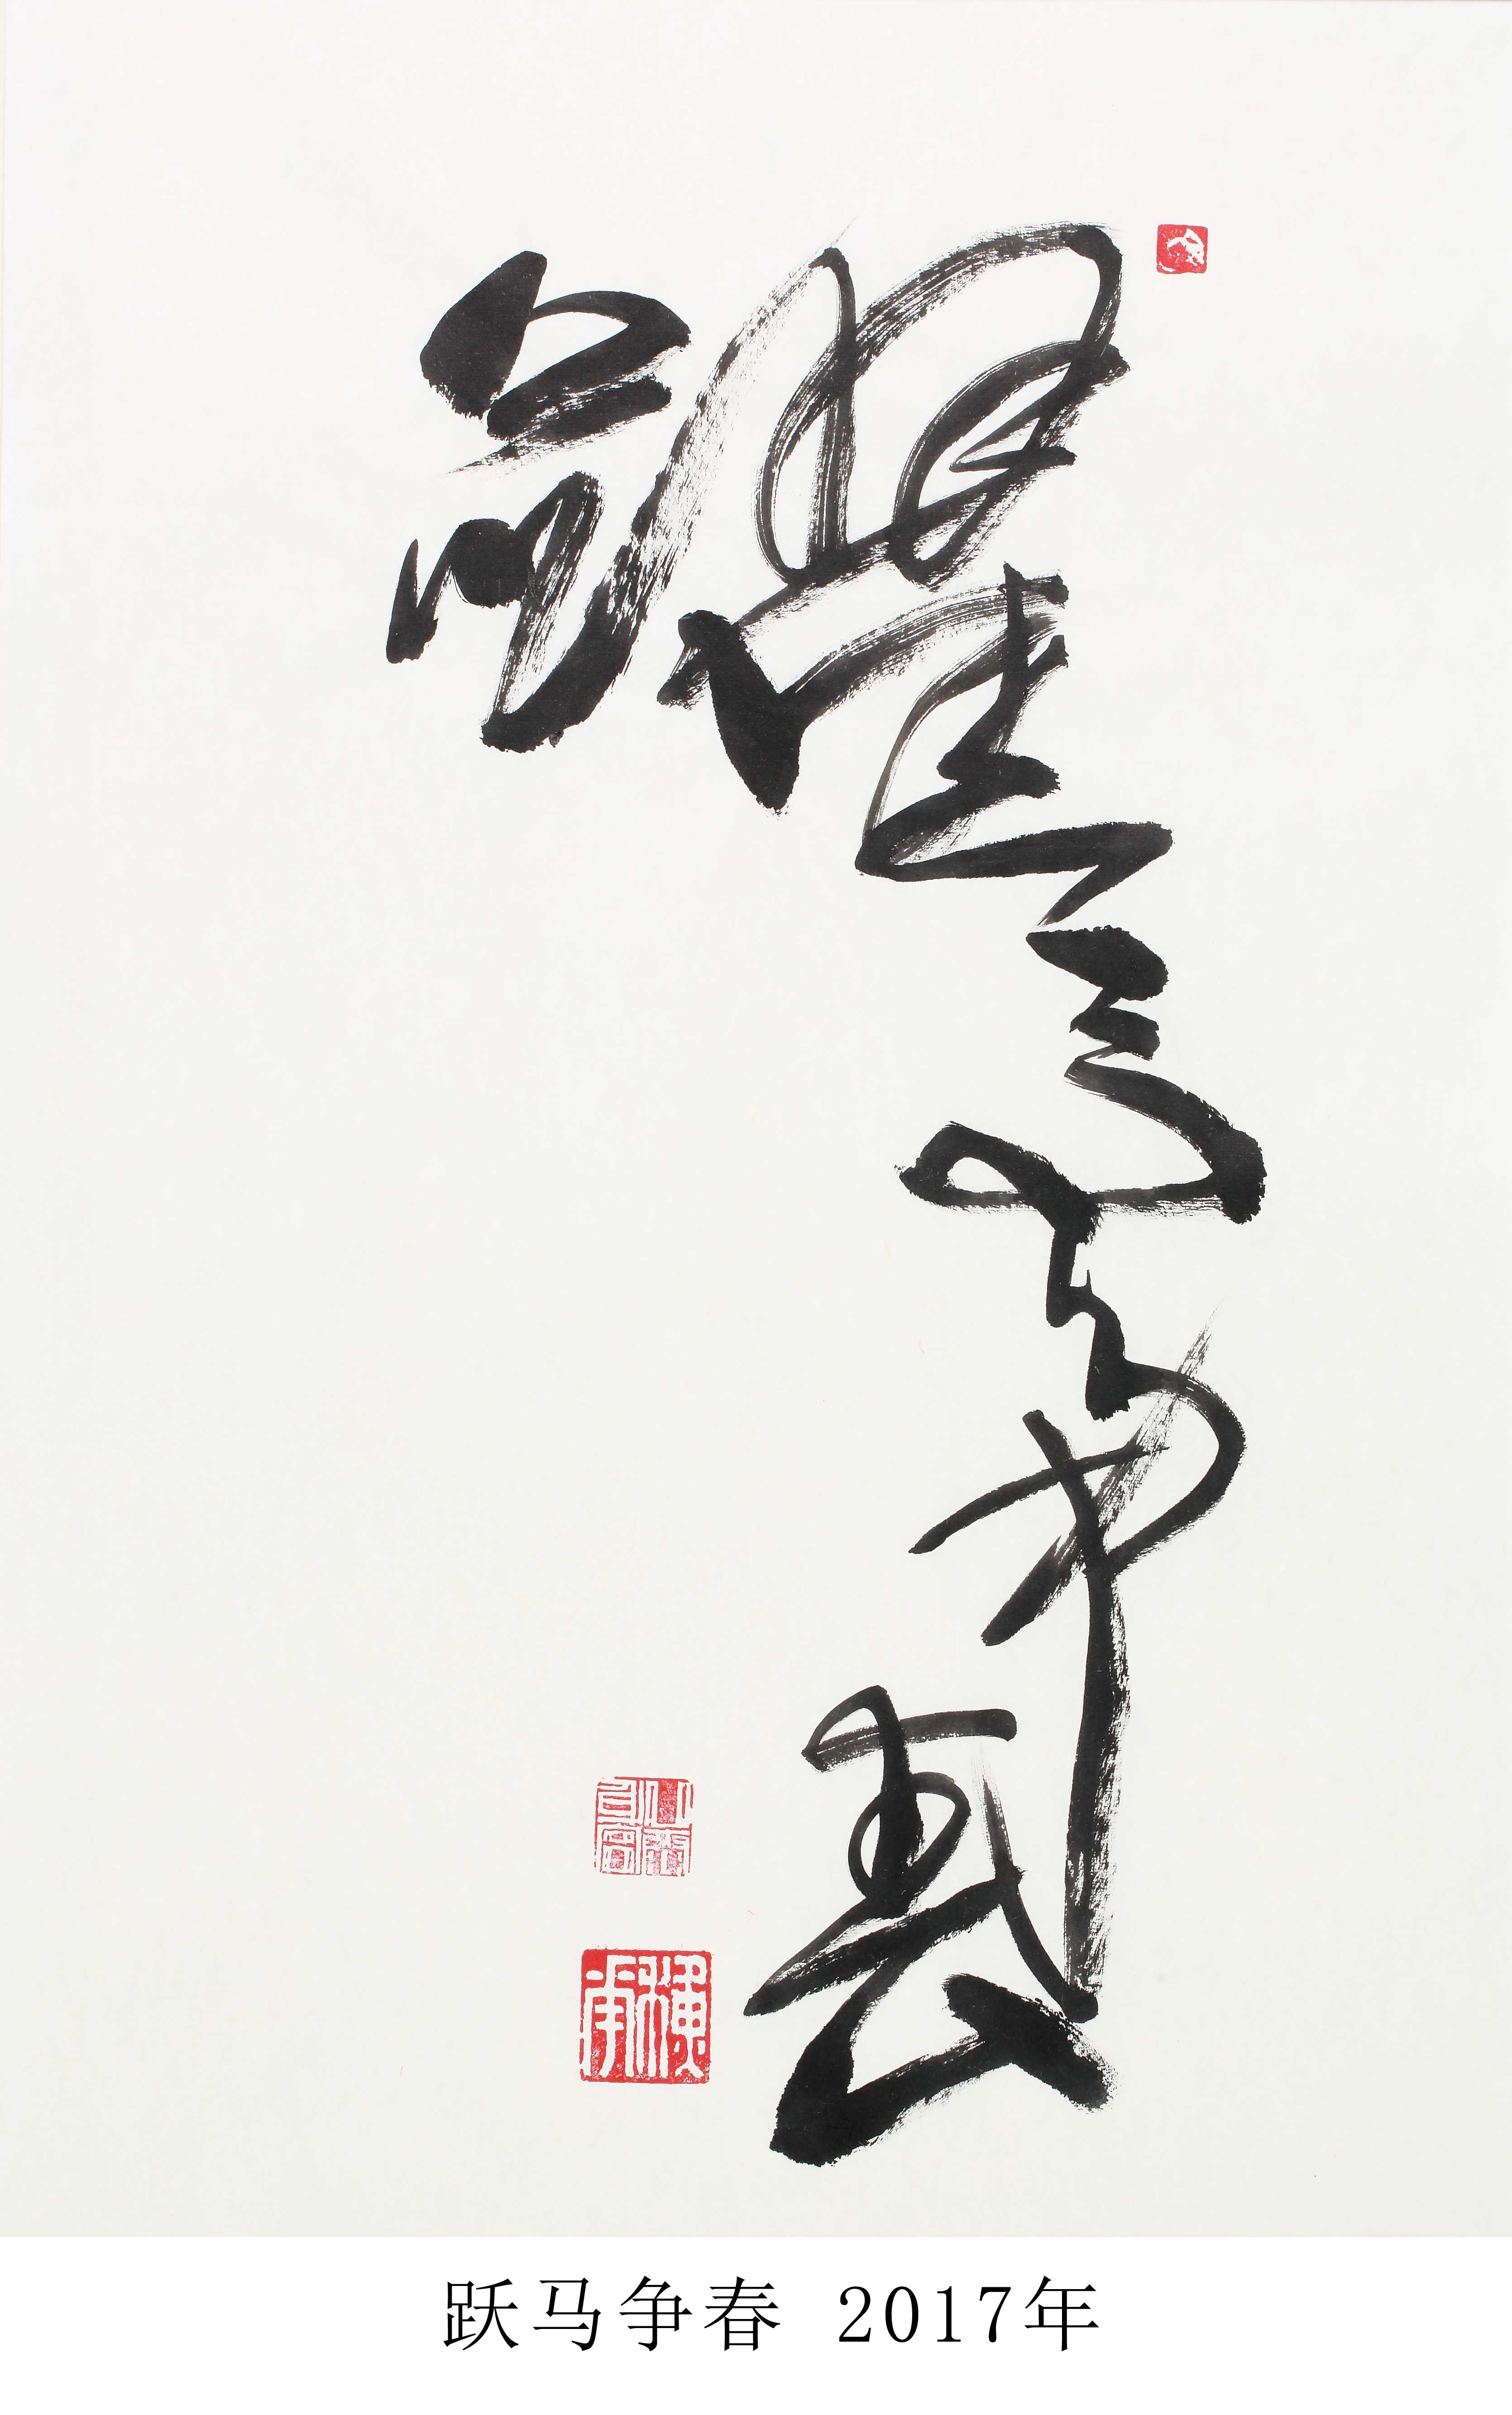 躍馬争春
跃马争春 2017年